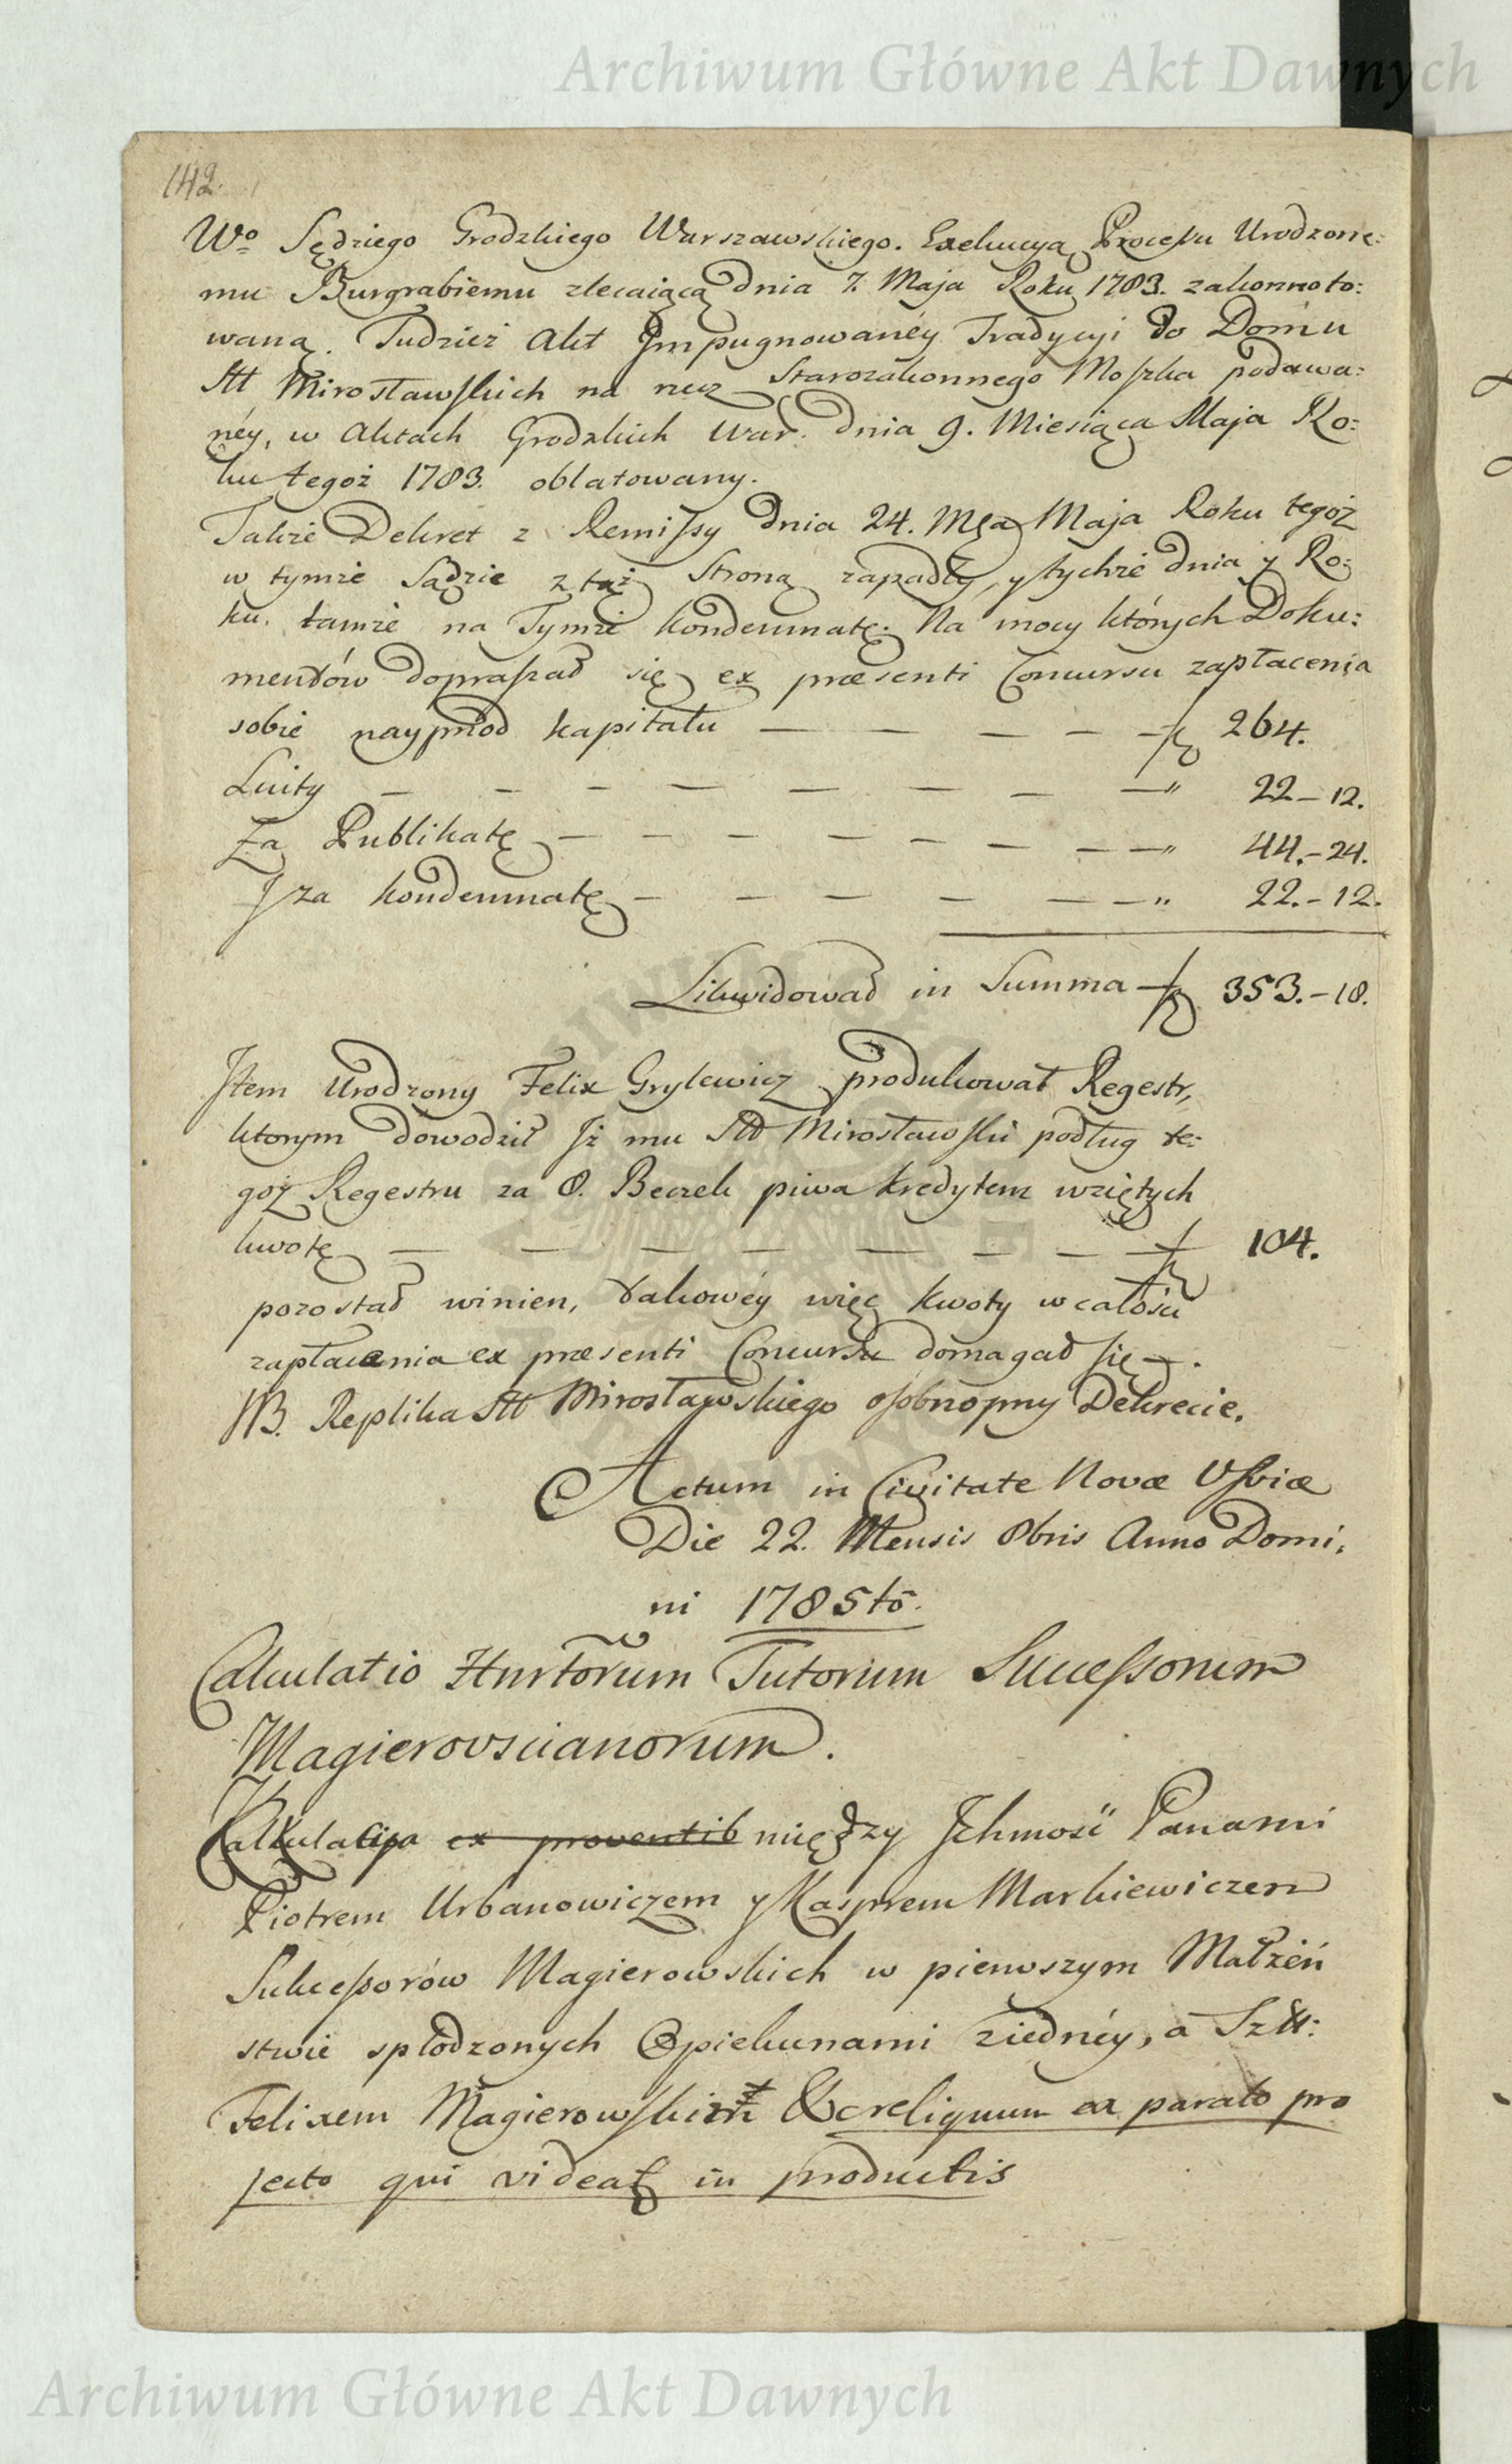 Archiwum Główne Akt Dawnych
142.
Wo Sędziego Grodzkiego Warszawskiego. Exekucyą Processu Urodzone:
mu Burgrabiemu zlecaiącą dnia 7. Maja Roku 1783. zakonnoto:
waną. Tudzież Akt Jmpugnowanéy Tradycyi do Domu
Stt Mirosławskich na rzecz Starozakonnego Moszka podawa:
néy, w Aktach Grodzkich War. dnia 9. Miesiąca Maja Ro:
ku tegoż 1783. oblatowany.
Także Dekret z Remissy dnia 24. Mca Maja Roku tegoż
w tymże Sądzie z tąż Stroną zapadły, y tychże dnia y Ro:
ku. tamże na Tymże kondemnatę. Na mocy których Doku:
mentów dopraszał się ex præsenti Concursu zapłacenia
sobie naypřod kapitału — — — — — 264.
Luity — — — — — — — — " 22 – 12.
Za Publikatę — — — — — — — — " 44. – 24.
J za kondemnatę — — — — — — " 22. – 12.
Likwidował in Summa 353. – 18.
Jtem Urodzony Felix Grylewicz produkował Regestr,
ktorym dowodził Jż mu Stt Mirosławski podług te:
goż Regestru za 8. Beczek piwa kredytem wziętych
kwotę — — — — — — — — 104.
pozostał winien, takowéy więc kwoty w całości
zapłacenia ex præsenti Concursu domagał się —.
NB. Replika Stt Mirosławskiego osobno przy Dekrecie.
Actum in Civitate Novæ Jssviæ
Die 22. Mensis 8bris Anno Domi,
ni 1785to.
Calculatio Hnrtorum Tutorum Successorum
Magierovscianorum.
Kalkulacya ex proventib między Jchmość Panami
Piotrem Urbanowiczem y Kasprem Markiewiczem
Sukcessorów Magierowskich w pierwszym Małżeń
stwie spłodzonych Opiekunami z iednéy, a Sztt:
Felixem Magierowskim &c reliquum ex parato pro
jecto qui videat in productis
Archiwum Główne Akt Dawnych